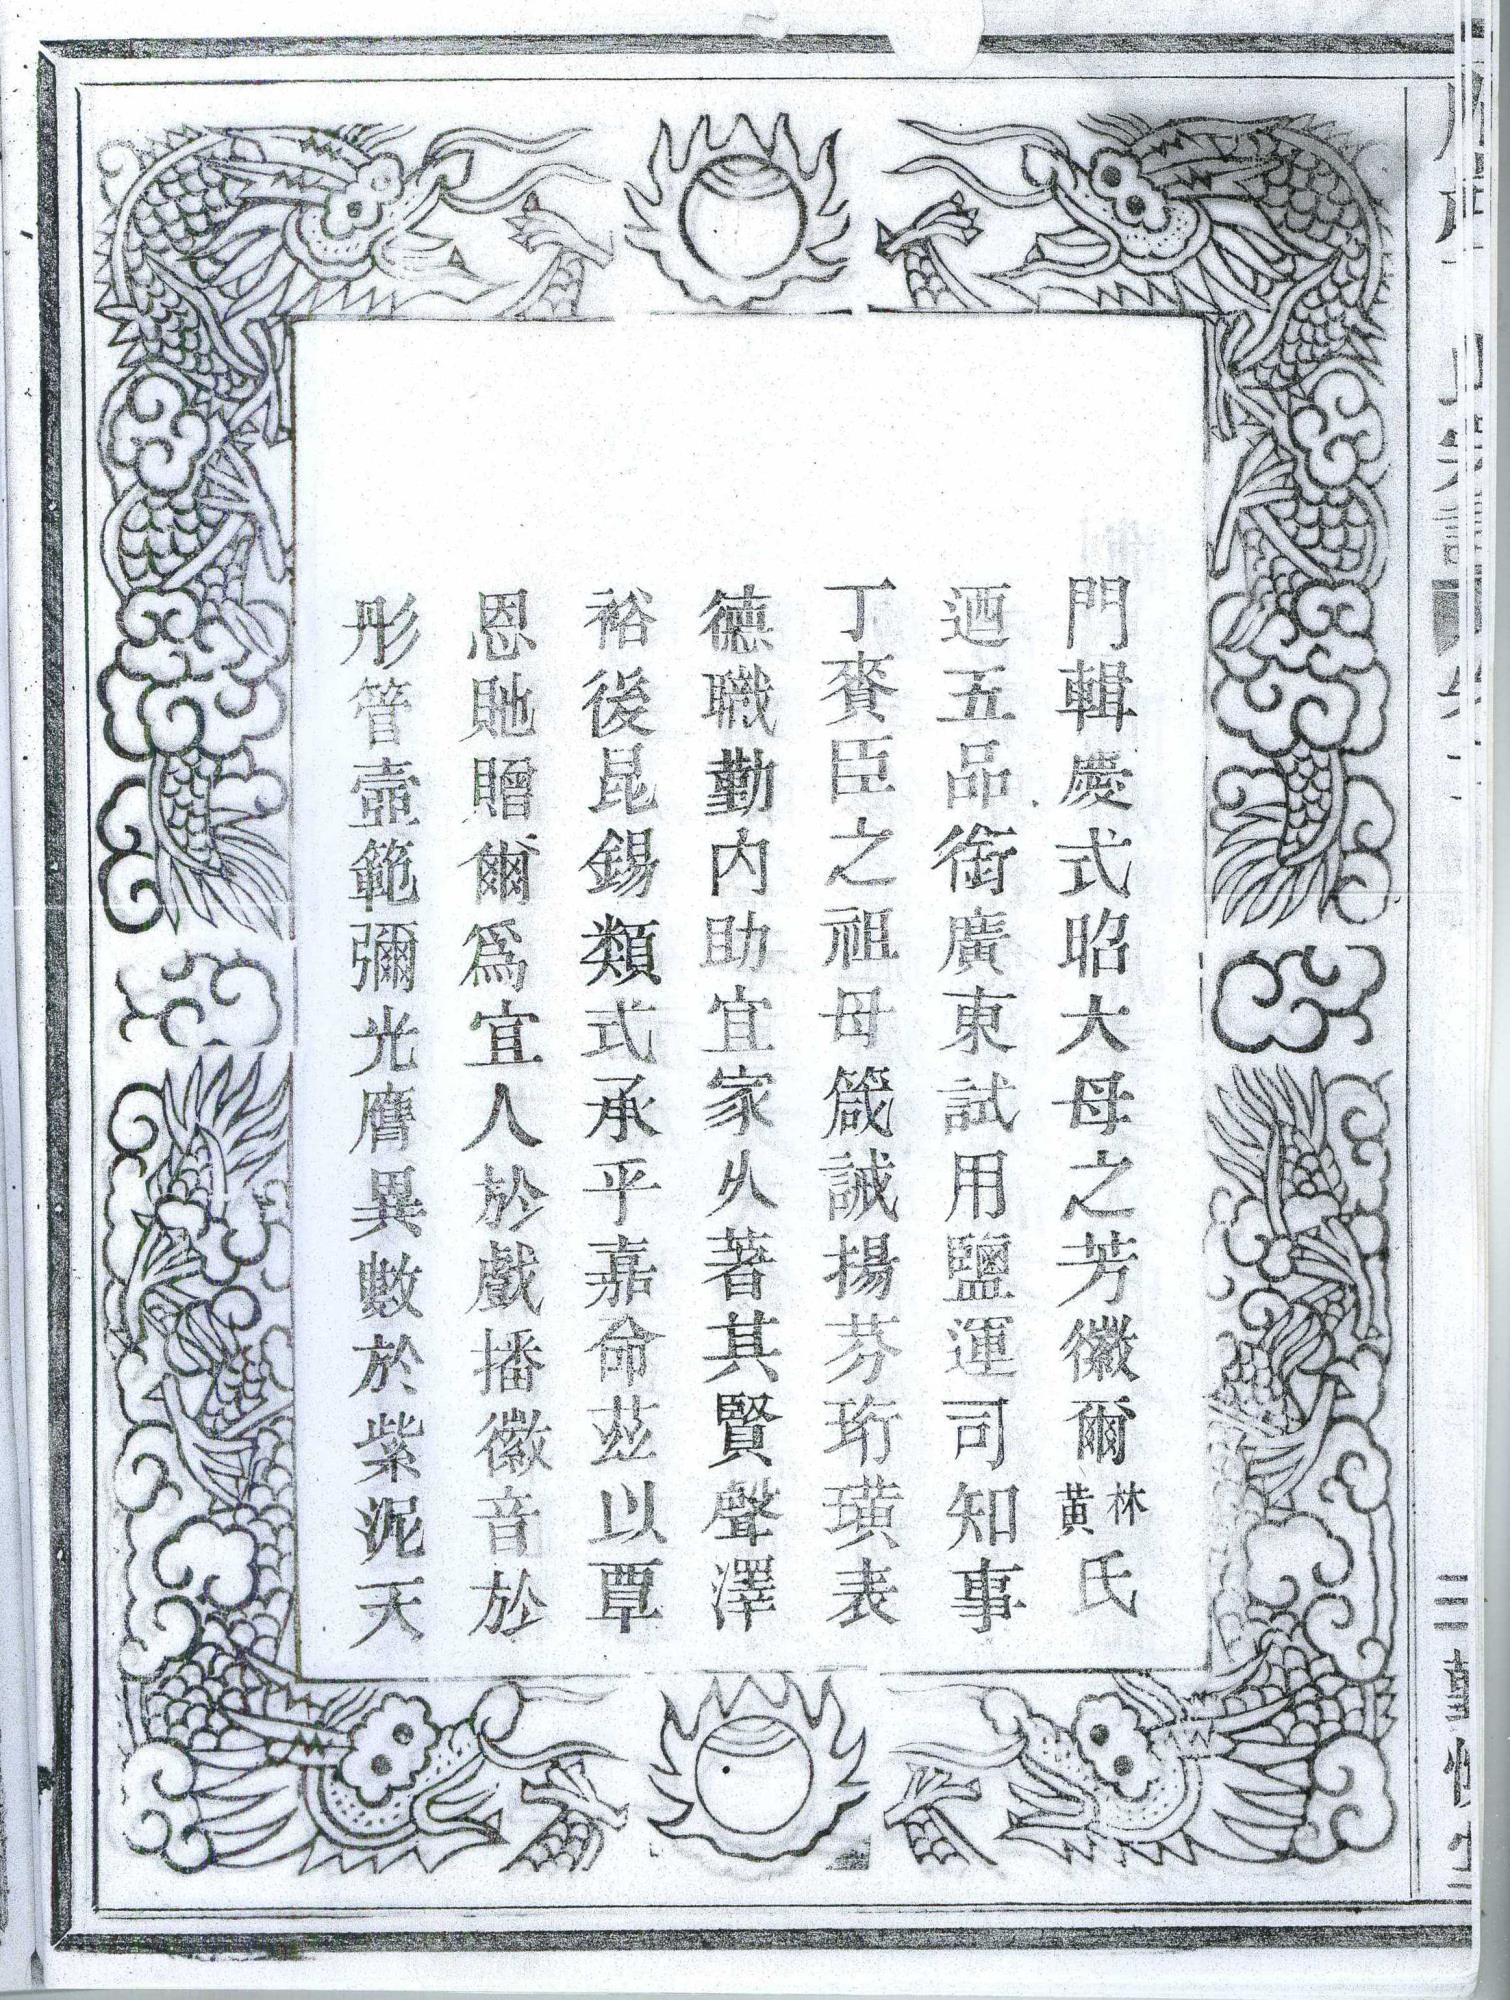 門輯慶式昭大母之芳徽爾林黃氏
迺五品銜廣東試用鹽運司知事
丁賚臣之祖母箴誡揚芬珩璜表
德職勤内助宜家久著其賢聲澤
裕後昆錫類式承乎嘉命茲以覃
恩貤贈爾爲宜人於戲播徽音於
彤管壼範彌光膺異數於紫泥天